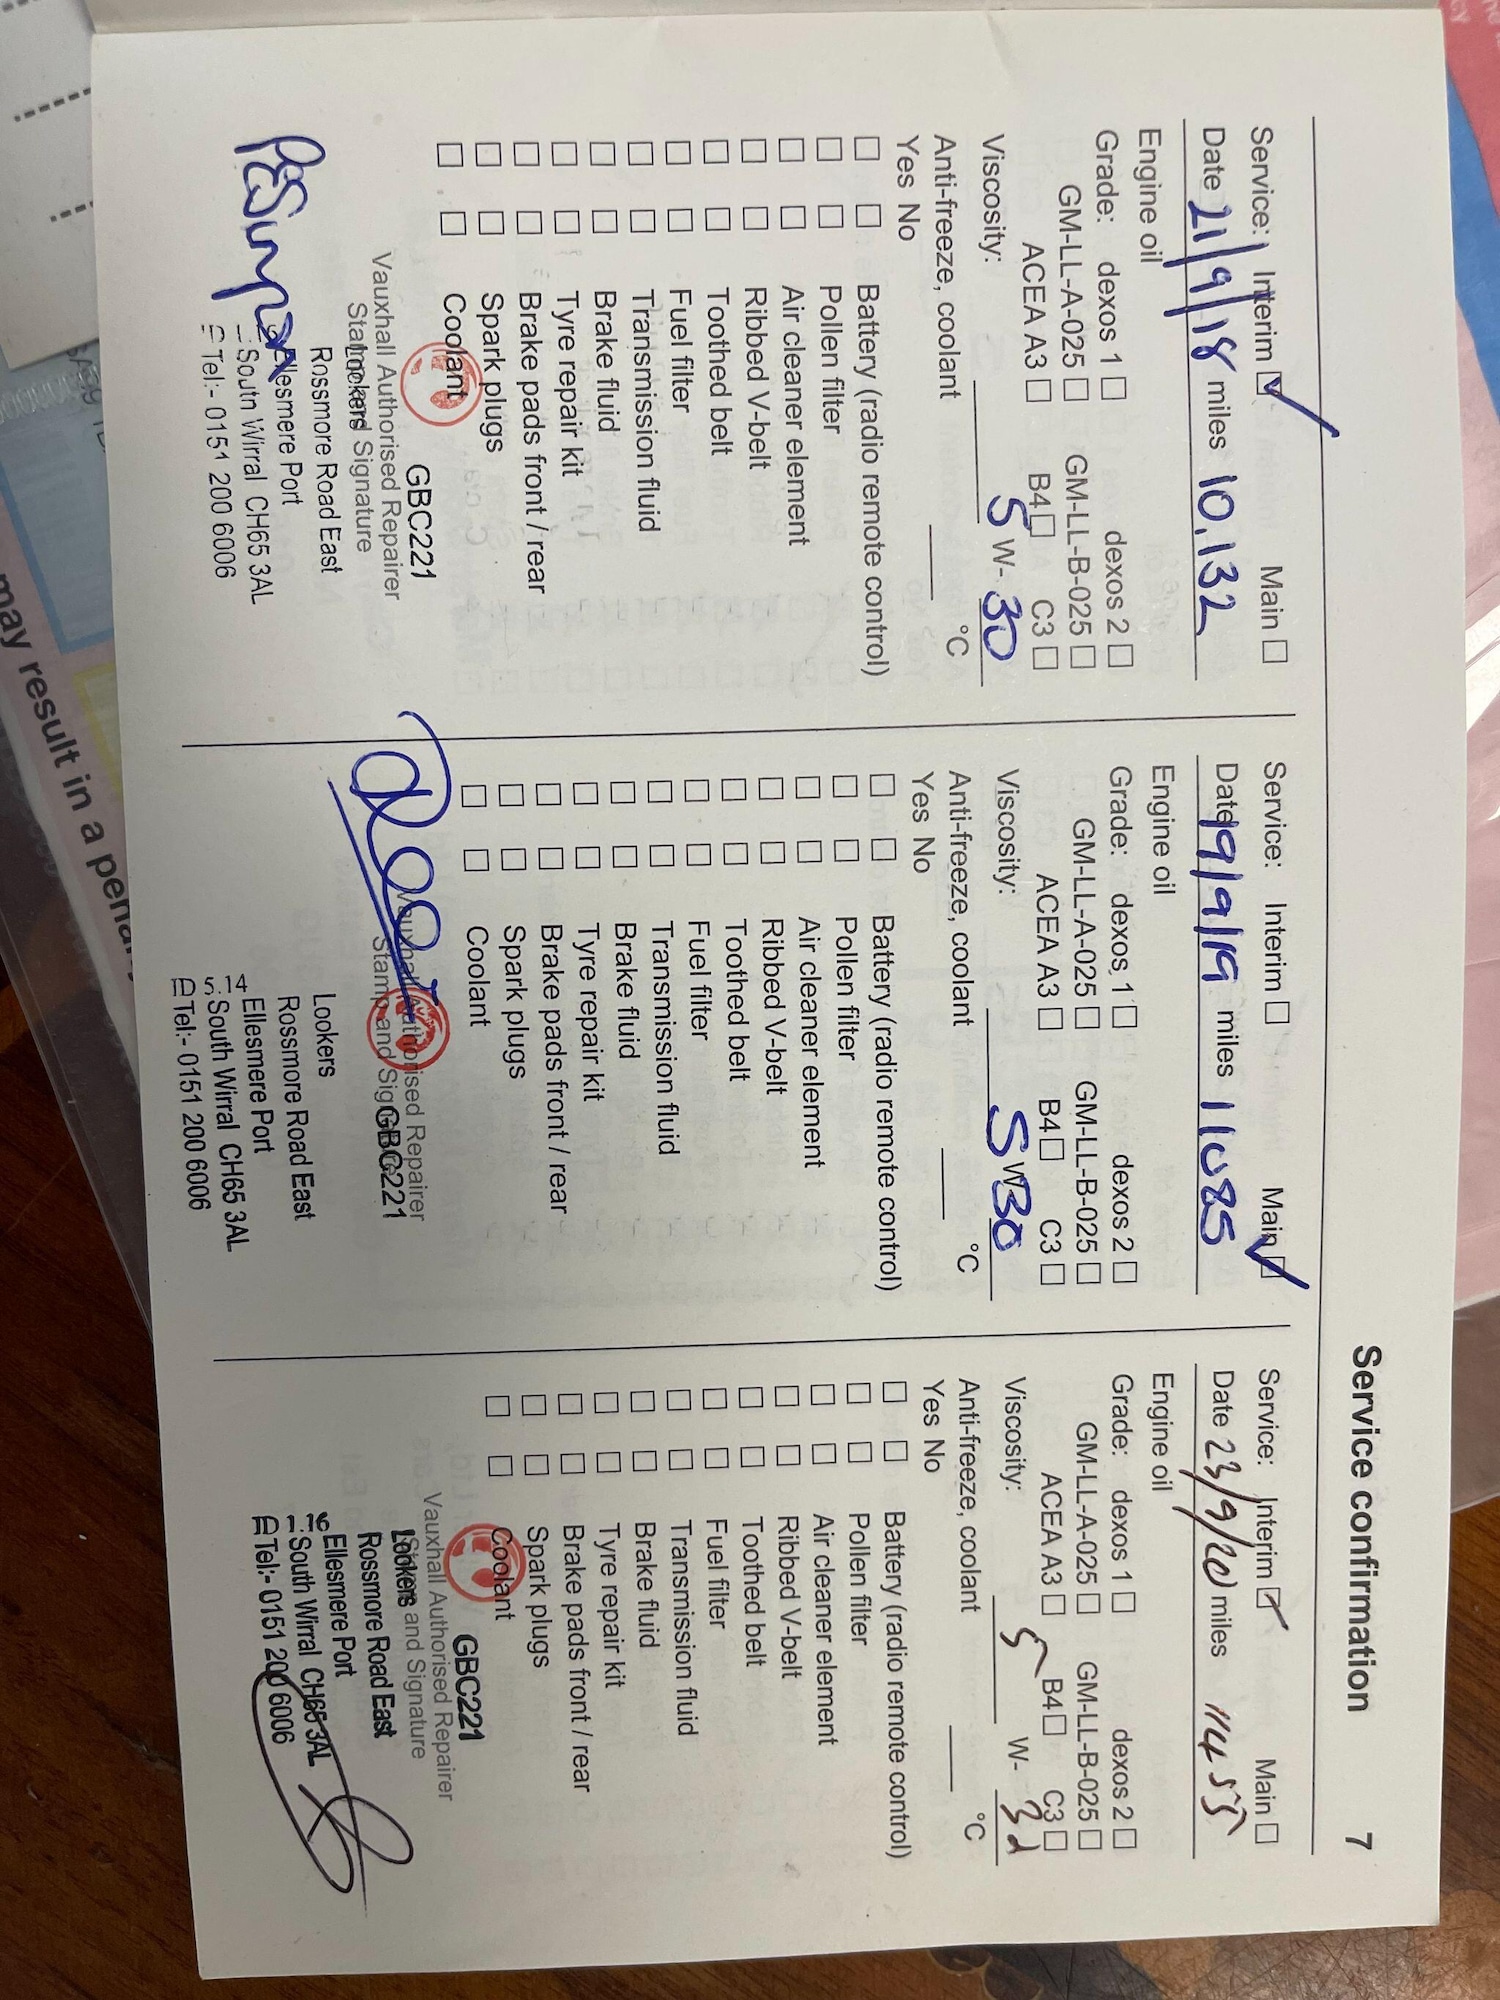 Service confirmation 7
Service: Interim ☑ Main ☐
Date 21/9/18 miles 10,132
Engine oil
Grade: dexos 1 ☐ dexos 2 ☐
GM-LL-A-025 ☐ GM-LL-B-025 ☐
ACEA A3 ☐ B4 ☐ C3 ☐
Viscosity: 5 W- 30
Anti-freeze, coolant °C
Yes No
☐ ☐ Battery (radio remote control)
☐ ☐ Pollen filter
☐ ☐ Air cleaner element
☐ ☐ Ribbed V-belt
☐ ☐ Toothed belt
☐ ☐ Fuel filter
☐ ☐ Transmission fluid
☐ ☐ Brake fluid
☐ ☐ Tyre repair kit
☐ ☐ Brake pads front / rear
☐ ☐ Spark plugs
☐ ☐ Coolant
GBC221
Vauxhall Authorised Repairer
Stamp and Signature
Lookers
Rossmore Road East
Ellesmere Port
South Wirral CH65 3AL
Tel:- 0151 200 6006
Service: Interim ☐ Main ☑
Date 19/9/19 miles 11085
Engine oil
Grade: dexos 1 ☐ dexos 2 ☐
GM-LL-A-025 ☐ GM-LL-B-025 ☐
ACEA A3 ☐ B4 ☐ C3 ☐
Viscosity: 5 W- 30
Anti-freeze, coolant °C
Yes No
☐ ☐ Battery (radio remote control)
☐ ☐ Pollen filter
☐ ☐ Air cleaner element
☐ ☐ Ribbed V-belt
☐ ☐ Toothed belt
☐ ☐ Fuel filter
☐ ☐ Transmission fluid
☐ ☐ Brake fluid
☐ ☐ Tyre repair kit
☐ ☐ Brake pads front / rear
☐ ☐ Spark plugs
☐ ☐ Coolant
Vauxhall Authorised Repairer
Stamp and Signature
GBC221
Lookers
Rossmore Road East
Ellesmere Port
South Wirral CH65 3AL
Tel:- 0151 200 6006
Service: Interim ☑ Main ☐
Date 23/9/20 miles 11455
Engine oil
Grade: dexos 1 ☐ dexos 2 ☐
GM-LL-A-025 ☐ GM-LL-B-025 ☐
ACEA A3 ☐ B4 ☐ C3 ☐
Viscosity: 5 W- 30
Anti-freeze, coolant °C
Yes No
☐ ☐ Battery (radio remote control)
☐ ☐ Pollen filter
☐ ☐ Air cleaner element
☐ ☐ Ribbed V-belt
☐ ☐ Toothed belt
☐ ☐ Fuel filter
☐ ☐ Transmission fluid
☐ ☐ Brake fluid
☐ ☐ Tyre repair kit
☐ ☐ Brake pads front / rear
☐ ☐ Spark plugs
☐ ☐ Coolant
GBC221
Vauxhall Authorised Repairer
Stamp and Signature
Lookers
Rossmore Road East
Ellesmere Port
South Wirral CH65 3AL
Tel:- 0151 200 6006
may result in a